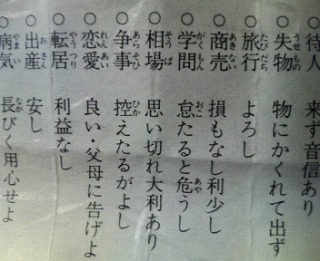 ○待人　来す音信あり
○失物　物にかくれて出ず
○旅行　よろし
○商売　損もなし利少し
○学問　怠たると危うし
○相場　思い切れ大利あり
○争事　控えたるがよし
○恋愛　良い・父母に告げよ
○転居　利益なし
○出産　安し
○病気　長びく用心せよ